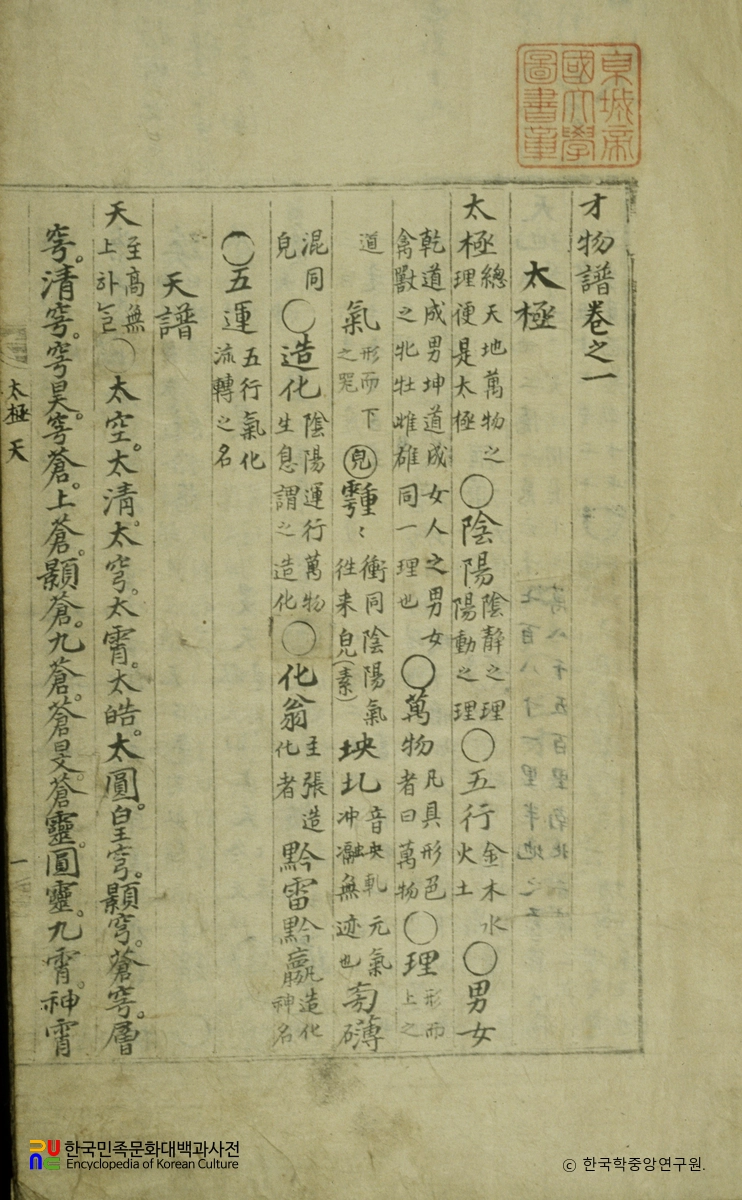 京城帝
國大學
圖書章
才物譜卷之一
太極
太極總天地萬物之理便是太極○陰陽陰靜之理陽動之理○五行金木水火土○男女
乾道成男坤道成女人之男女禽獸之牝牡雌雄同一理也○萬物凡具形色者曰萬物○理形而上之
道 氣形而下之 皃 衝同陰陽氣往來皃(素) 坱圠音央軋元氣冲瀜無迹也 旁礴
混同皃○造化陰陽運行萬物生息謂之造化○化翁主張造化者 黔雷黔嬴造化神名
○五運五行氣化流轉之名
天譜
天至高無上하ᄂᆞᆯ○太空。太清。太穹。太霄。太皓。太圓。皇穹。顥穹。蒼穹。層
穹。清穹。穹昊。穹蒼。上蒼。顥蒼。九蒼。蒼旻。蒼靈。圓靈。九霄。神霄
太極 天
一
한국민족문화대백과사전
Encyclopedia of Korean Culture
ⓒ 한국학중앙연구원.